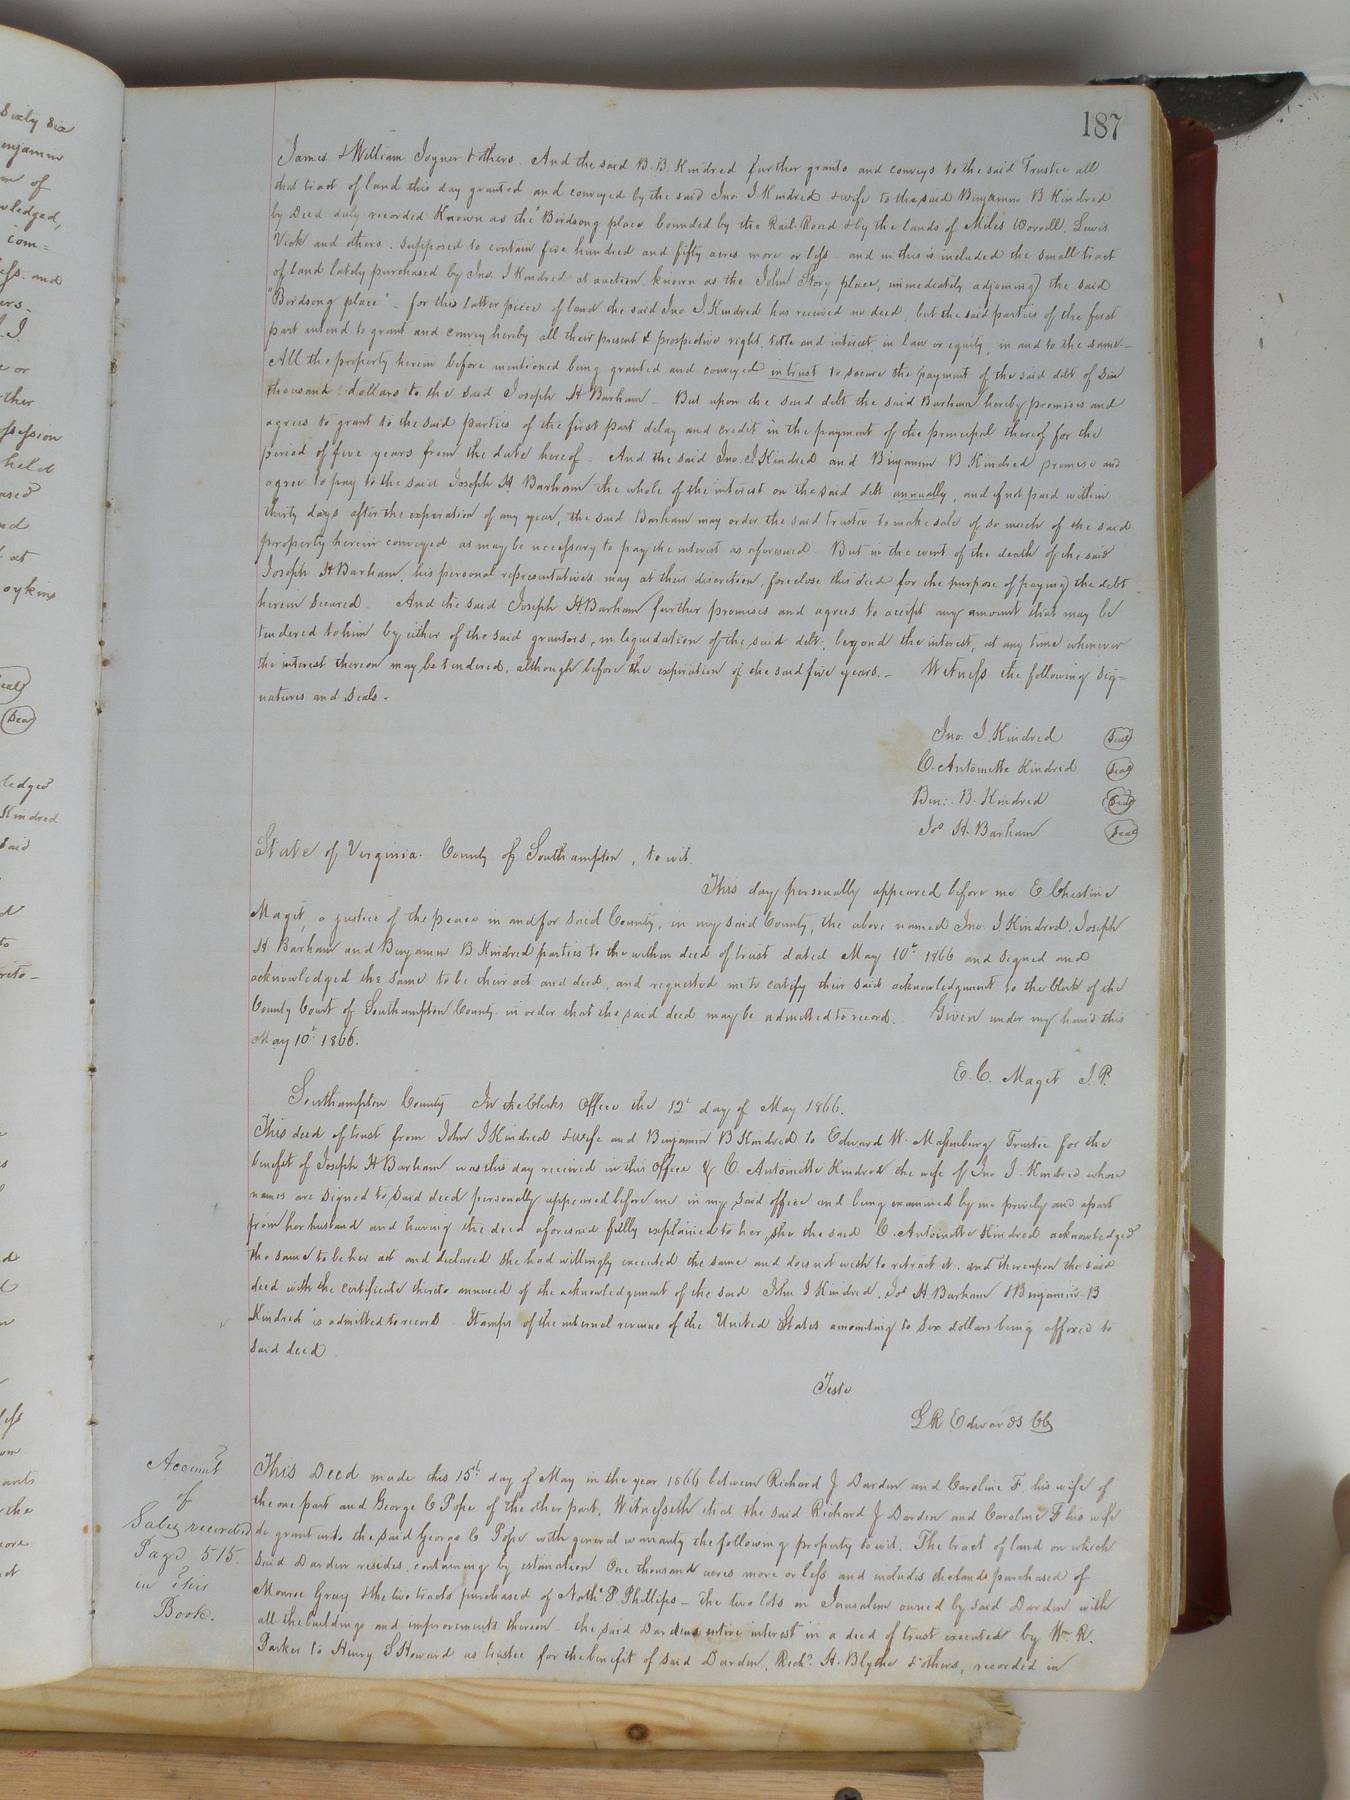 187
James & William Joyner & others. And the said B. B. Kindred further grants and conveys to the said Trustee all
that tract of land this day granted and conveyed by the said Jno. J. Kindred & wife to the said Benjamin B Kindred
by Deed duly recorded Known as the "Birdsong place bounded by the Rail-Road & by the lands of Miles Worrell, Lewis
Vick and others. Supposed to contain five hundred and fifty acres more or less - and in this is included the small tract
of land lately purchased by Jno. J Kindred at auction known as the John Story place, immediately adjoining the said
"Birdsong place" - for this latter piece of land the said Jno J. Kindred has received no deed, but the said parties of the first
part intend to grant and convey hereby all their present & prospective right, title and interest, in law or equity, in and to the same -
All the property herein before mentioned being granted and conveyed in trust to secure the payment of the said debt of Six
thousand dollars to the said Joseph H Barham - But upon the said debt the said Barham hereby promises and
agrees to grant to the said parties of the first part delay and credit in the payment of the principal thereof for the
period of five years from the date hereof - And the said Jno. J. Kindred and Binjamin B Kindred promise and
agree to pay to the said Joseph H Barham the whole of the interest on the said debt annually, and if not paid within
thirty days after the expiration of any year, the said Barham may order the said trustee to make sale of so much of the said
property herein conveyed as may be necessary to pay the interest as aforesaid - But in the event of the death of the said
Joseph H Barham, his personal representatives may at their discretion, foreclose this deed for the purpose of paying the debt
herein secured. And the said Joseph H Barham further promises and agrees to accept any amount that may be
tendered to him by either of the said grantors, in liquidation of the said debt, beyond the interest, at any time whenever
the interest thereon may be tendered, although before the expiration of the said five years. - Witness the following sig=
natures and seals -
Jno. J. Kindred Seal
C. Antoinette Kindred Seal
Ben: B. Kindred Seal
Jos H. Barham Seal
State of Virginia. County of Southampton, to wit.
This day personally appeared before me E Christine
Magit, a justice of the peace in and for said County, in my said County, the above named Jno. J. Kindred, Joseph
H Barham and Benjamin B Kindred parties to the within deed of trust dated May 10th 1866 and signed and
acknowledged the same to be their act and deed, and requested me to certify their said acknowledgment to the Clerk of the
County Court of Southampton County in order that the said deed may be admitted to record. Given under my hand this
May 10th 1866.
E. C. Magit J.P.
Southampton County In the Clerks Office the 12th day of May 1866.
This deed of trust from John J Kindred & wife and Benjamin B Kindred to Edward W. Massenburg Trustee for the
benefit of Joseph H Barham was this day received in this office & C. Antoinette Kindred the wife of Jno J. Kindred whose
names are signed to said deed personally appeared before me in my said office and being examined by me privily and apart
from her husband and having the deed aforesaid fully explained to her, she the said C. Antoinette Kindred acknowledged
the same to be her act and declared she had willingly executed the same and does not wish to retract it. and thereupon the said
deed with the certificate thereto annexed of the acknowledgement of the said John J Kindred, Jos H Barham & Benjamin B
Kindred is admitted to record. Stamps of the internal revenue of the United States amounting to six dollars being affixed to
said deed
Teste
L R Edwards CC
Account
of
Sales recorded
Page 515.
in this
Book.
This Deed made this 15th day of May in the year 1866 between Richard J Darden and Caroline F his wife of
the one part and George C Pope of the other part. Witnesseth that the said Richard J Darden and Caroline F his wife
do grant unto the said George C Pope with general warranty the following property to wit. The tract of land on which
said Darden resides, containing by estimation One thousand acres more or less and includes the lands purchased of
Monroe Gray & the two tracts purchased of Nathl P. Phillips - the two lots in Jerusalem owned by said Darden with
all the buildings and improvements thereon - the said Dardens entire interest in a deed of trust executed by Wm R.
Parker to Henry S Howard as trustee for the benefit of said Darden, Richd H. Blythe & others, recorded in